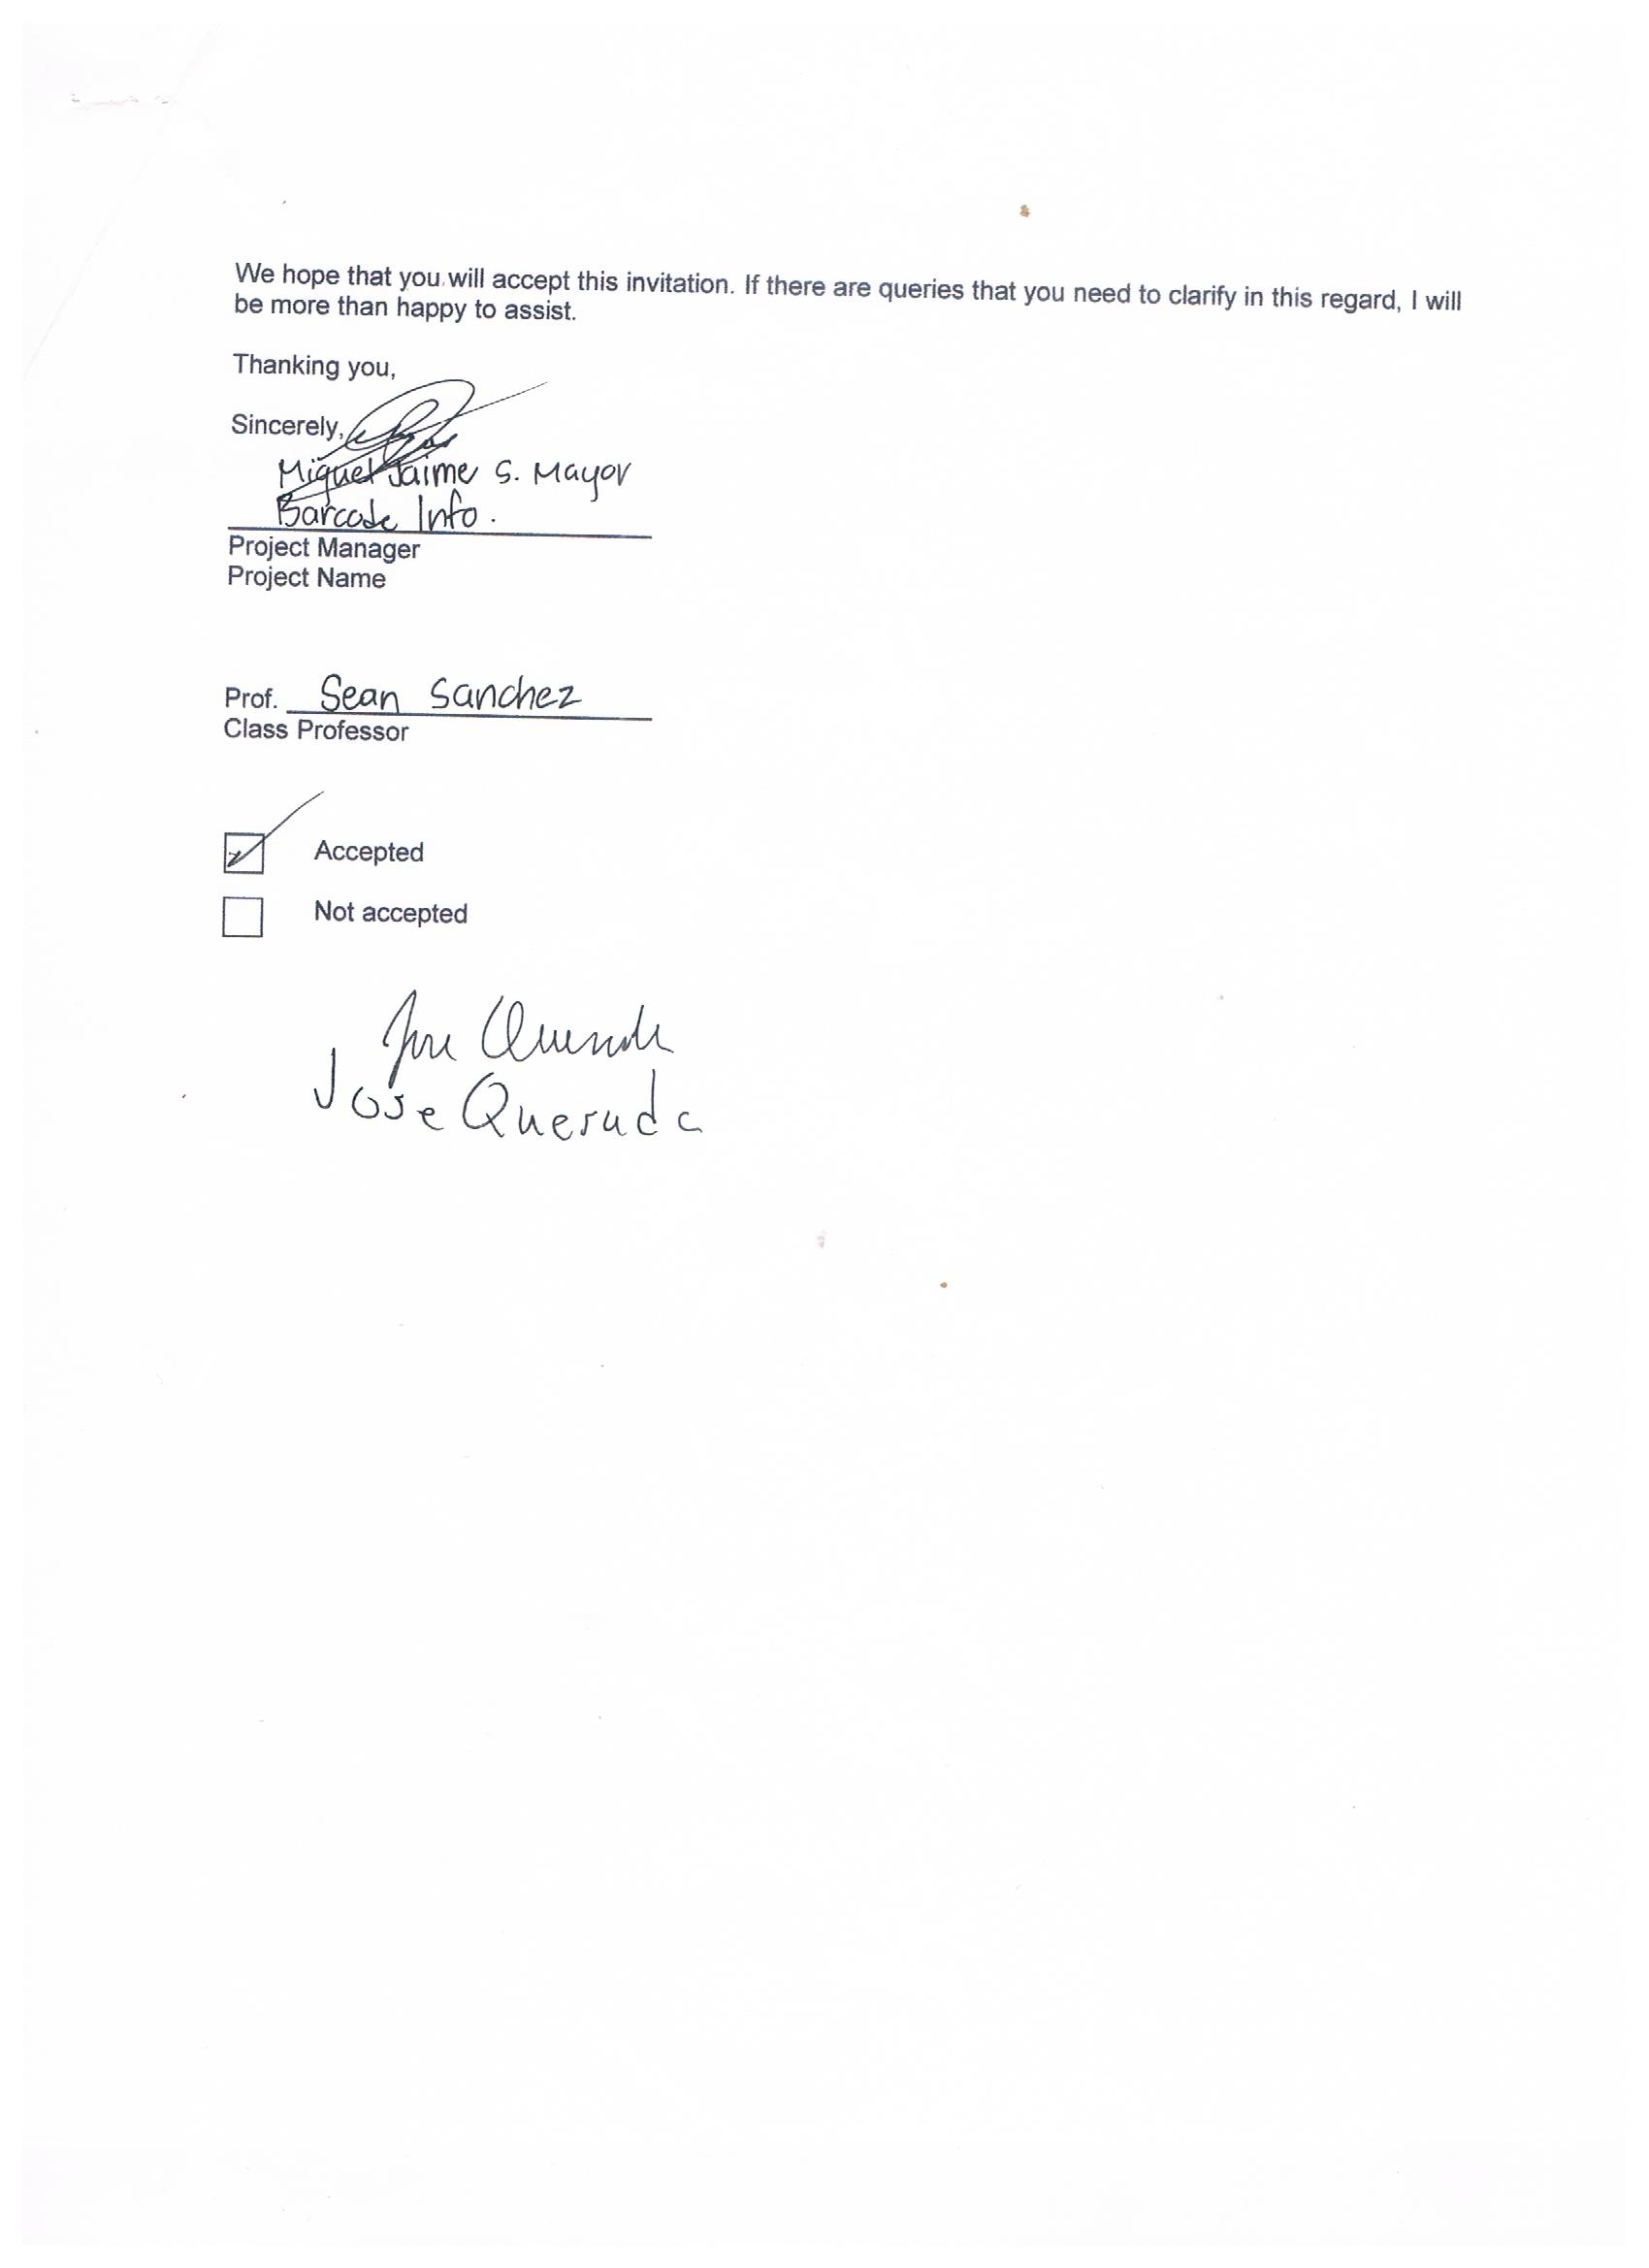 We hope that you will accept this invitation. If there are queries that you need to clarify in this regard, I will
be more than happy to assist.
Thanking you,
Sincerely,
Miguel Jaime S. Mayor
Barcode Info.
Project Manager
Project Name
Prof. Sean Sanchez
Class Professor
Accepted
Not accepted
Jose
Jose Queruda